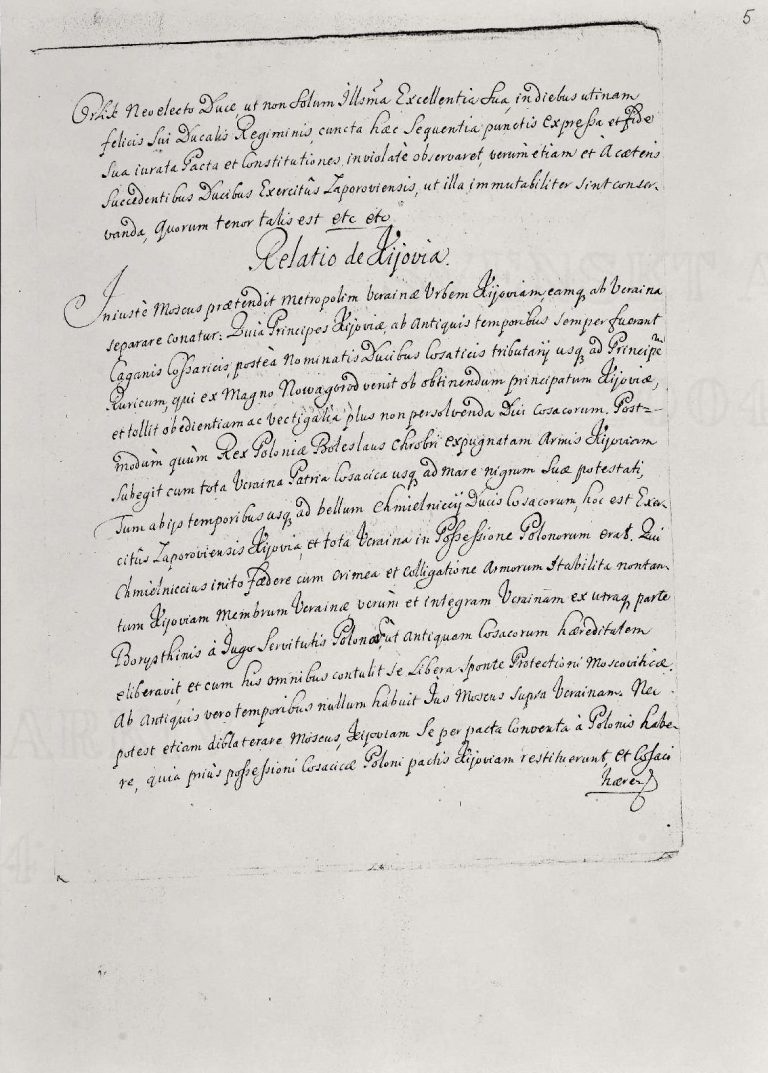 5
Orlik Neoelecto Duce, ut non Solum Illsma Excellentia Sua, in diebus utinam
felicis Sui Ducalis Regiminis, cuncta hæc Sequentia punctis expressa et fide
Sua iurata Pacta et Constitutiones, inviolatè observaret, verùm etiam et à cæteris
Succedentibus Ducibus Exercitûs Zaporoviensis, ut illa immutabiliter sint conser-
vanda, Quorum tenor talis est etc etc
Relatio de Kijovia.
Iniustè Moscus prætendit Metropolim Ucrainæ Urbem Kijoviam, eamq ab Ucraina
separare conatur: Quia Principes Kijoviæ, ab Antiquis temporibus semper fuerant
Caganis Cossaricis, posteà Nominatis Ducibus Cosaticis tributarij usq ad Principem
Ruricum, qui ex Magno Nowagorod venit ob obtinendum principatum Kijoviæ,
et tollit obedientiam ac vectigalia plus non persolvenda Duci Cosacorum. Post-
modùm quùm Rex Poloniæ Boleslaus Chrobri expugnatam Armis Kijoviam
Subegit cum tota Ucraina Patria Cosacica usq ad mare nigrum Suæ potestati,
Tum ab ijs temporibus usq ad bellum Chmielniccij Ducis Cosacorum, hoc est Exer-
citûs Zaporoviensis Kijovia, et tota Ucraina in Possessione Polonorum erat. Qui
Chmielniccius inito Fædere cum Crimea et Colligatione Armorum Stabilita non tan-
tum Kijoviam Membrum Ucrainæ verùm et integram Ucrainam ex utraq parte
Borysthinis à Iugo Servitutis ut Antiquam Cosacorum hæreditatem
eliberavit, et cum his omnibus contulit se Libera Sponte Protectioni Moscoviticæ.
Ab Antiquis vero temporibus nullum habuit Ius Moscus Supra Ucrainam. Nec
potest etiam Moscus, Kijoviam Se per pacta Conventa à Polonis habe-
re, quia priùs possessioni Cosacicæ Poloni pactis Kijoviam restituerunt, et Cosaci
hære-